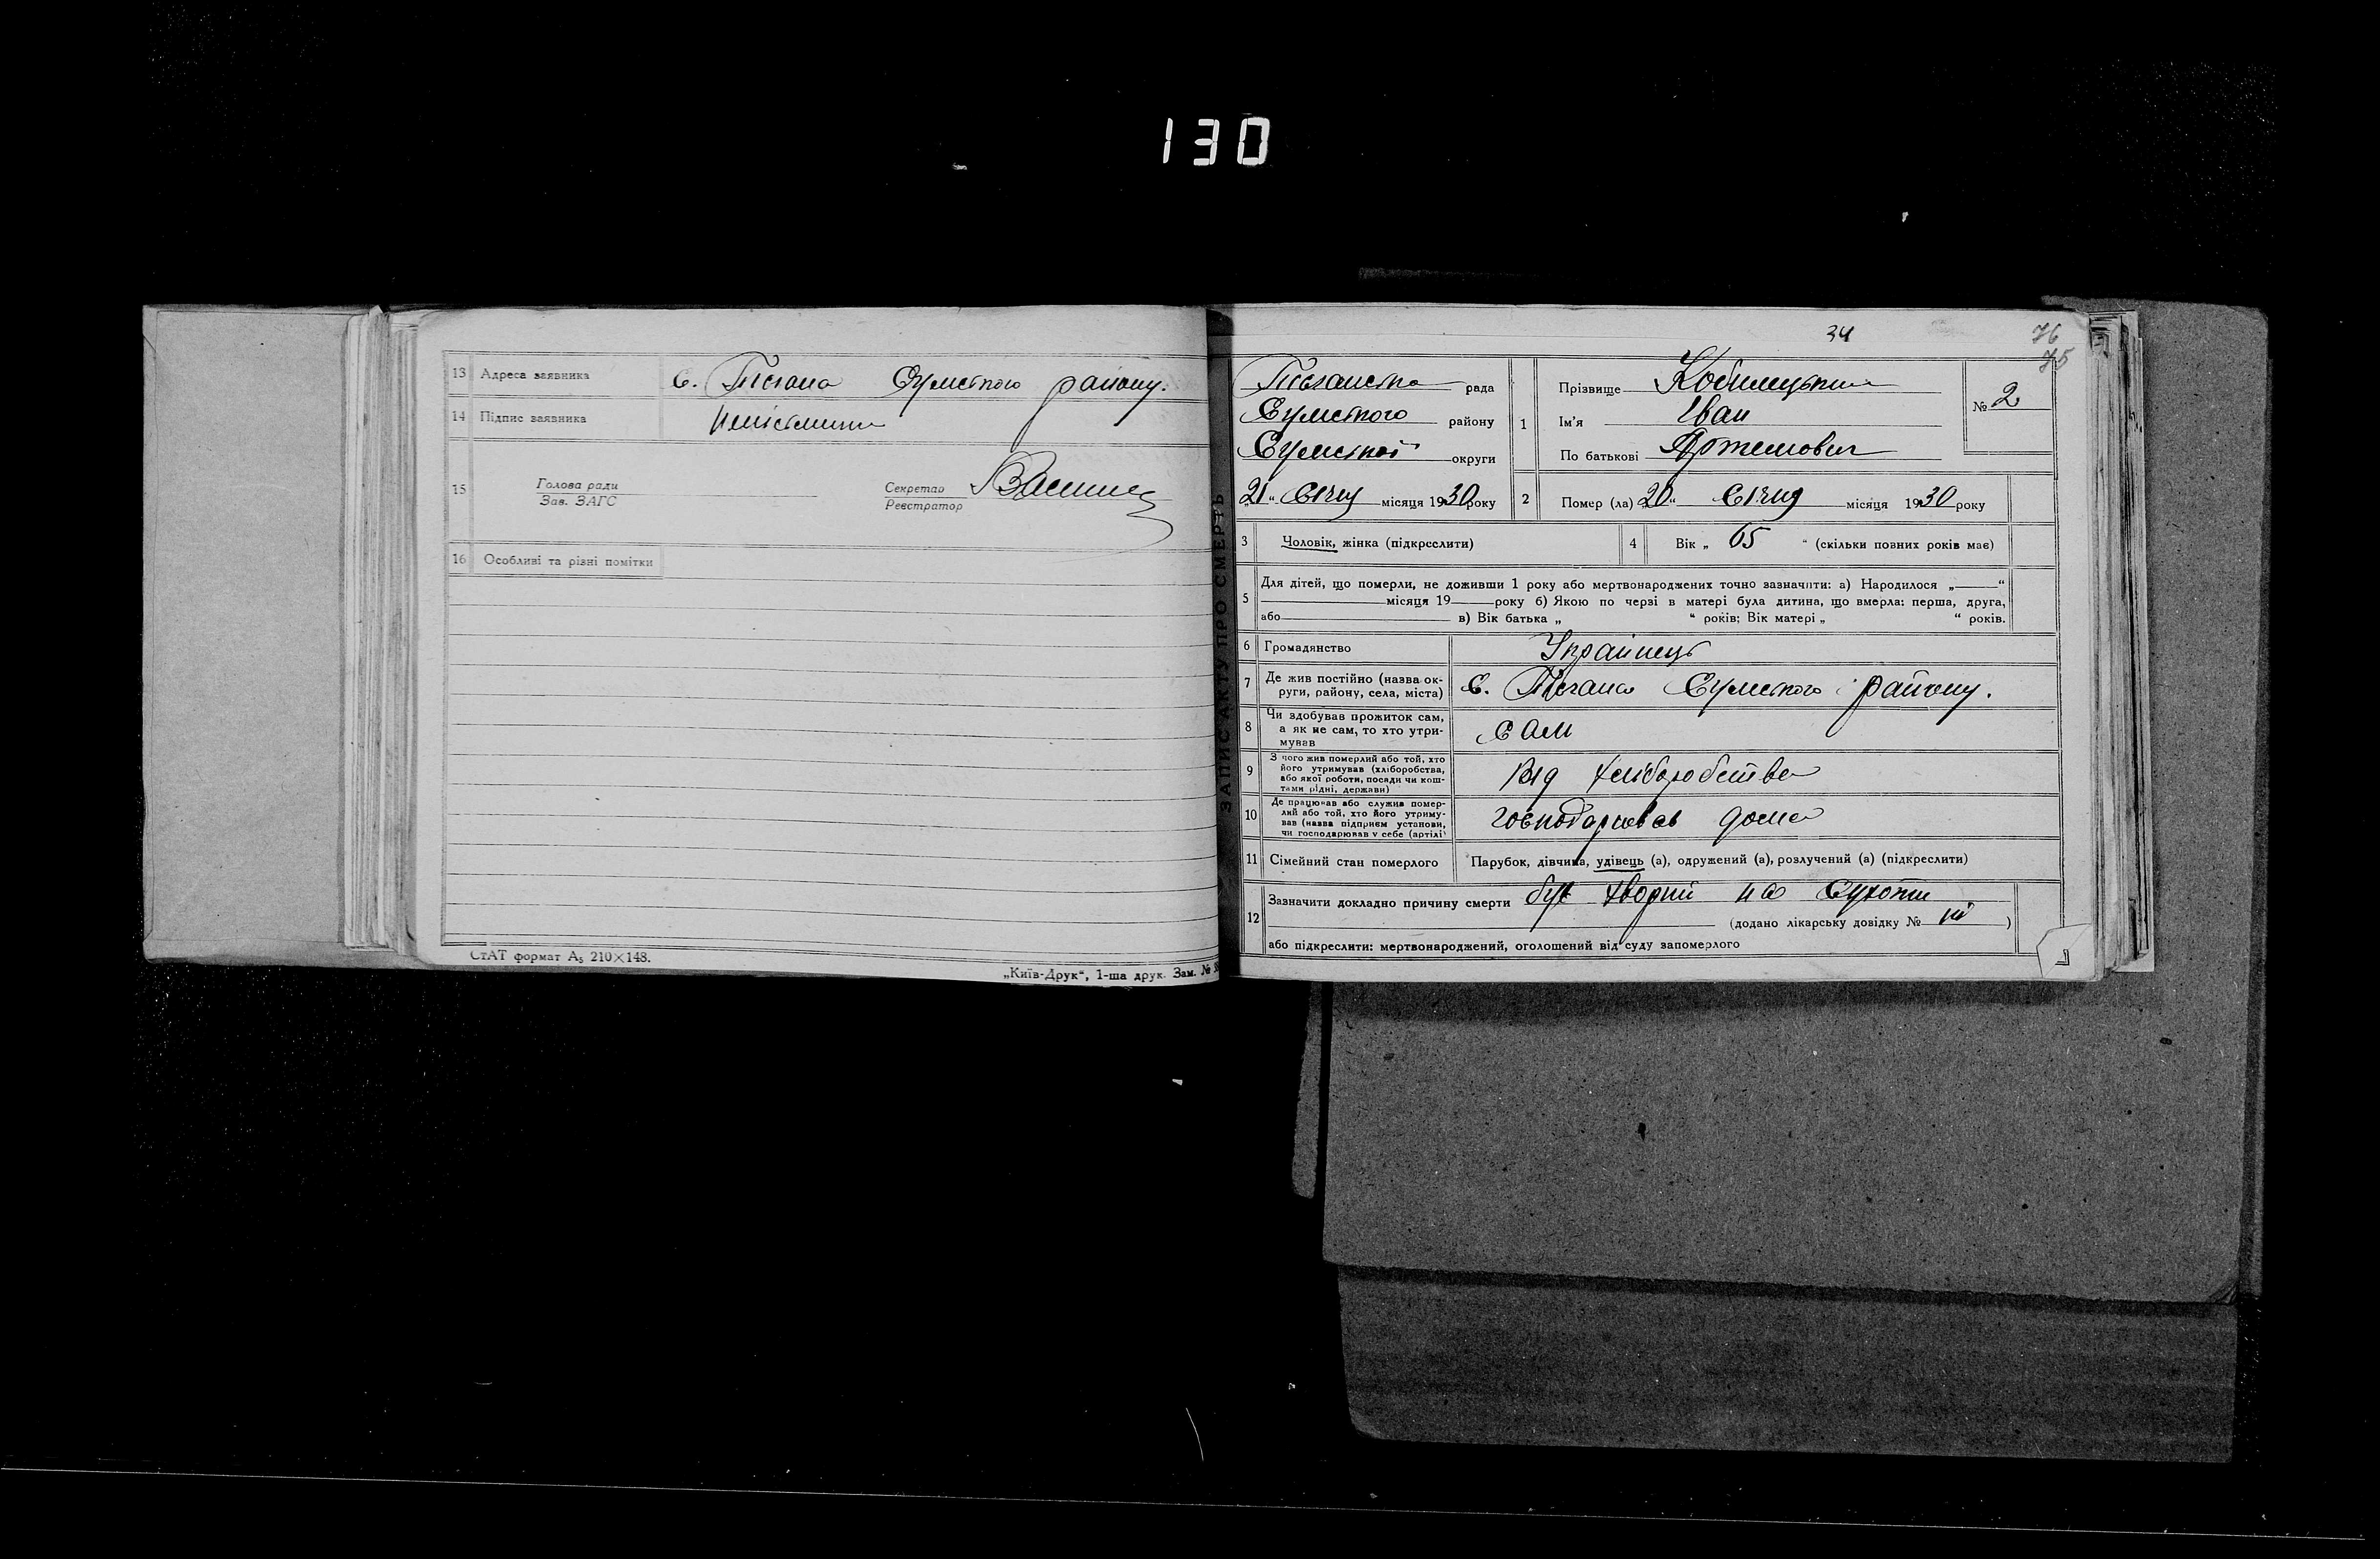 130
13 Адреса заявника с. Піщана Сумського району.
14 Підпис заявника Неписьмини
15 Голова ради
Зав. ЗАГС
Секретар
Реєстратор
16 Особливі та різні помітки
СтАТ формат А₅ 210×148.
„Київ-Друк“, 1-ша друк. Зам. №
ЗАПИС АКТУ ПРО СМЕРТЬ
34
76
75
Піщанська рада
Сумського району
Сумської округи
„21“ Січня місяця 1930 року
1 Прізвище
Ім'я Іван
По батькові Артемович
№ 2
2 Помер (ла) 20 “ Січня місяця 1930 року
3 Чоловік, жінка (підкреслити)
4 Вік „ 65 “ (скільки повних років має)
5 Для дітей, що померли, не доживши 1 року або мертвонароджених точно зазначити: а) Народилося „ “
місяця 19 року б) Якою по черзі в матері була дитина, що вмерла: перша, друга,
або в) Вік батька „ “ років; Вік матері „ “ років.
6 Громадянство Українець
7 Де жив постійно (назва ок-
руги, району, села, міста) с. Піщана Сумського району.
8 Чи здобував прожиток сам,
а як не сам, то хто утри-
мував сам
9 З чого жив померлий або той, хто
його утримував (хліборобства,
або якої роботи, посади чи кош-
тами рідні, держави) від хліборобства
10 Де працював або служив помер-
лий або той, хто його утриму-
вав (назва підприєм установи,
чи господарював у себе (артілі) господарював дома
11 Сімейний стан померлого Парубок, дівчина, удівець (а), одружений (а), розлучений (а) (підкреслити)
12 Зазначити докладно причину смерти був хворий на Сухоти
(додано лікарську довідку № ні )
або підкреслити: мертвонароджений, оголошений від суду запомерлого